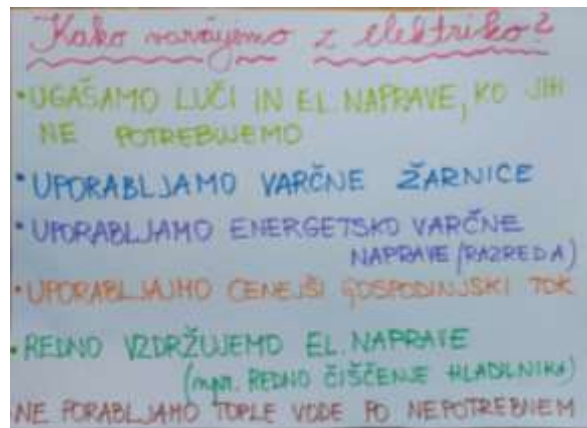 Kako varčujemo z elektriko?
• UGAŠAMO LUČI IN EL. NAPRAVE, KO JIH
NE POTREBUJEMO
• UPORABLJAMO VARČNE ŽARNICE
• UPORABLJAMO ENERGETSKO VARČNE
NAPRAVE (RAZREDA)
• UPORABLJAJMO CENEJŠI GOSPODINJSKI TOK
• REDNO VZDRŽUJEMO EL. NAPRAVE
(npr. REDNO ČIŠČENJE HLADILNIKA)
NE PORABLJAMO TOPLE VODE PO NEPOTREBNEM